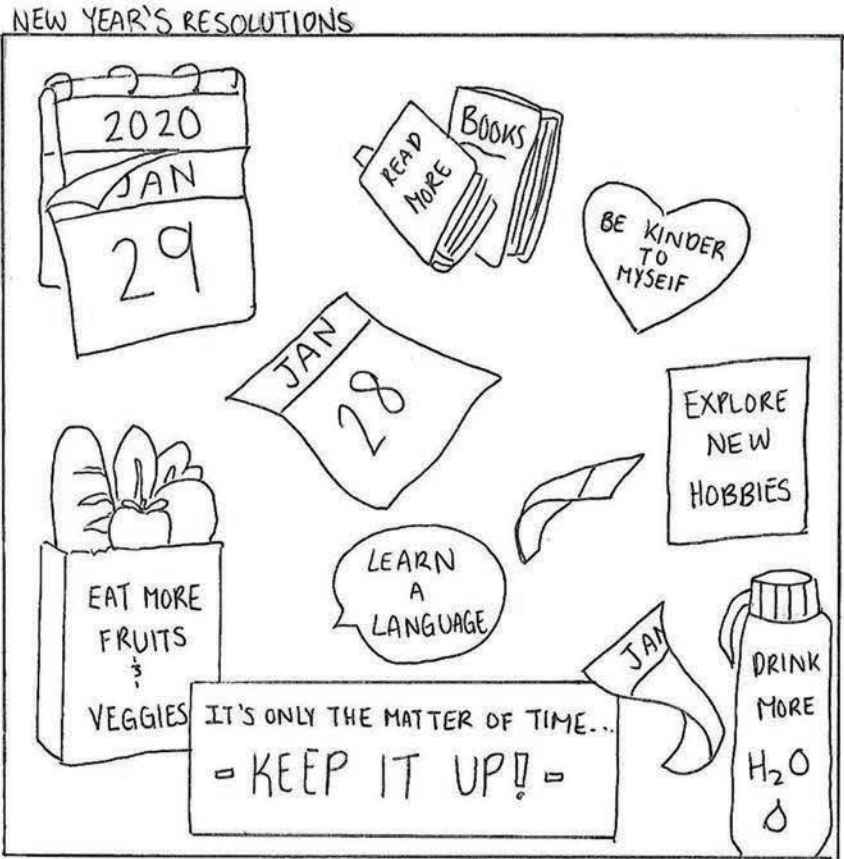 NEW YEAR'S RESOLUTIONS
2020
JAN
29
READ
MORE
BOOKS
BE KINDER
TO
MYSELF
JAN
28
EXPLORE
NEW
HOBBIES
EAT MORE
FRUITS
&
VEGGIES
LEARN
A
LANGUAGE
JAN
DRINK
MORE
H₂O
IT'S ONLY THE MATTER OF TIME...
- KEEP IT UP! -